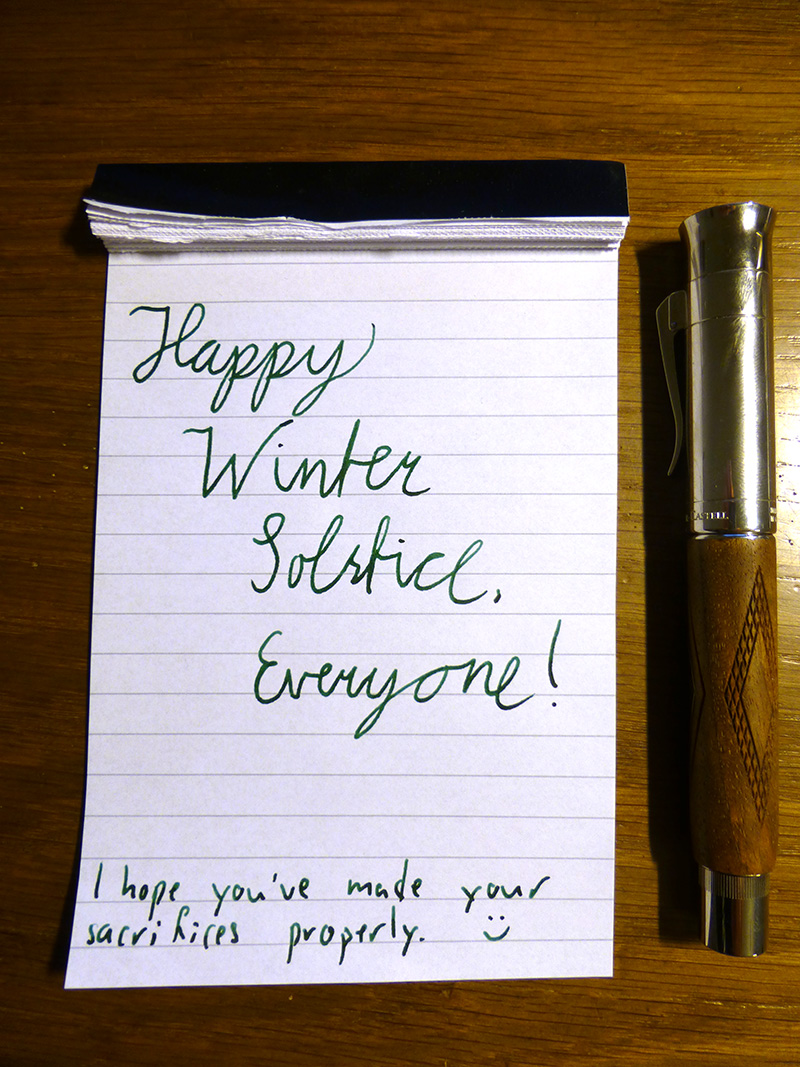 Happy
Winter
Solstice,
Everyone!
I hope you've made your
sacrifices properly. :)
CASTELL